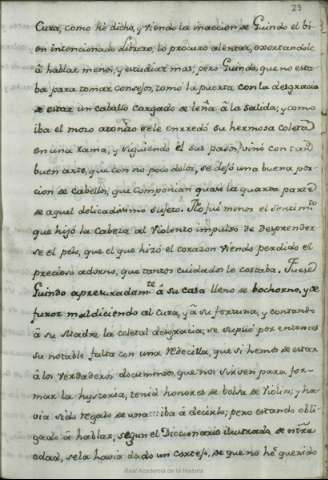 23
Cura, como he dicho, y viendo la inaccion de Guindo el bi-
en intencionado Librero, lo procuró alentar, exortandole
á hablar menos, y estudiar mas; pero Guindo, que no esta
ba para tomar consejos, tomó la puerta con la desgracia
de estar un caballo cargado de leña á la salida, y como
iba el mozo atonito se le enrredó su hermosa coleta
en una rama, y siguiendo él sus pasos, vinó con tan
buen arte, que con no poco dolor, se dejó una buena por-
cion de Cabellos, que componian quasi la quarta parte
de aquel delicadisimo sujeto. No fué menos el sentimto
que hizó la Cabeza al violento impulso de desprender
se el pelo, que el que hizó el corazon viendo perdido el
precioso adorno, que tantos cuidados le costaba. Fuese
Guindo apresuradamte á su casa lleno de bochorno, y de
furor maldiciendo al Cura, y á su fortuna, y contando
á su Madre la coletal desgracia, se suplió por entonces
su notable falta con una redecilla, que si hemos de estar
á los verdaderos documentos, que nos sirven para for-
mar la hystoria, tenía honores de bolsa de Violin; y ha-
via sido regalo de una:::: iba á decirlo; pero estando obli-
gado á hablar, segun el Diccionario ilustrado de ntra
edad, se la havia dado un cortejo, de que no he querido
Real Academia de la Historia